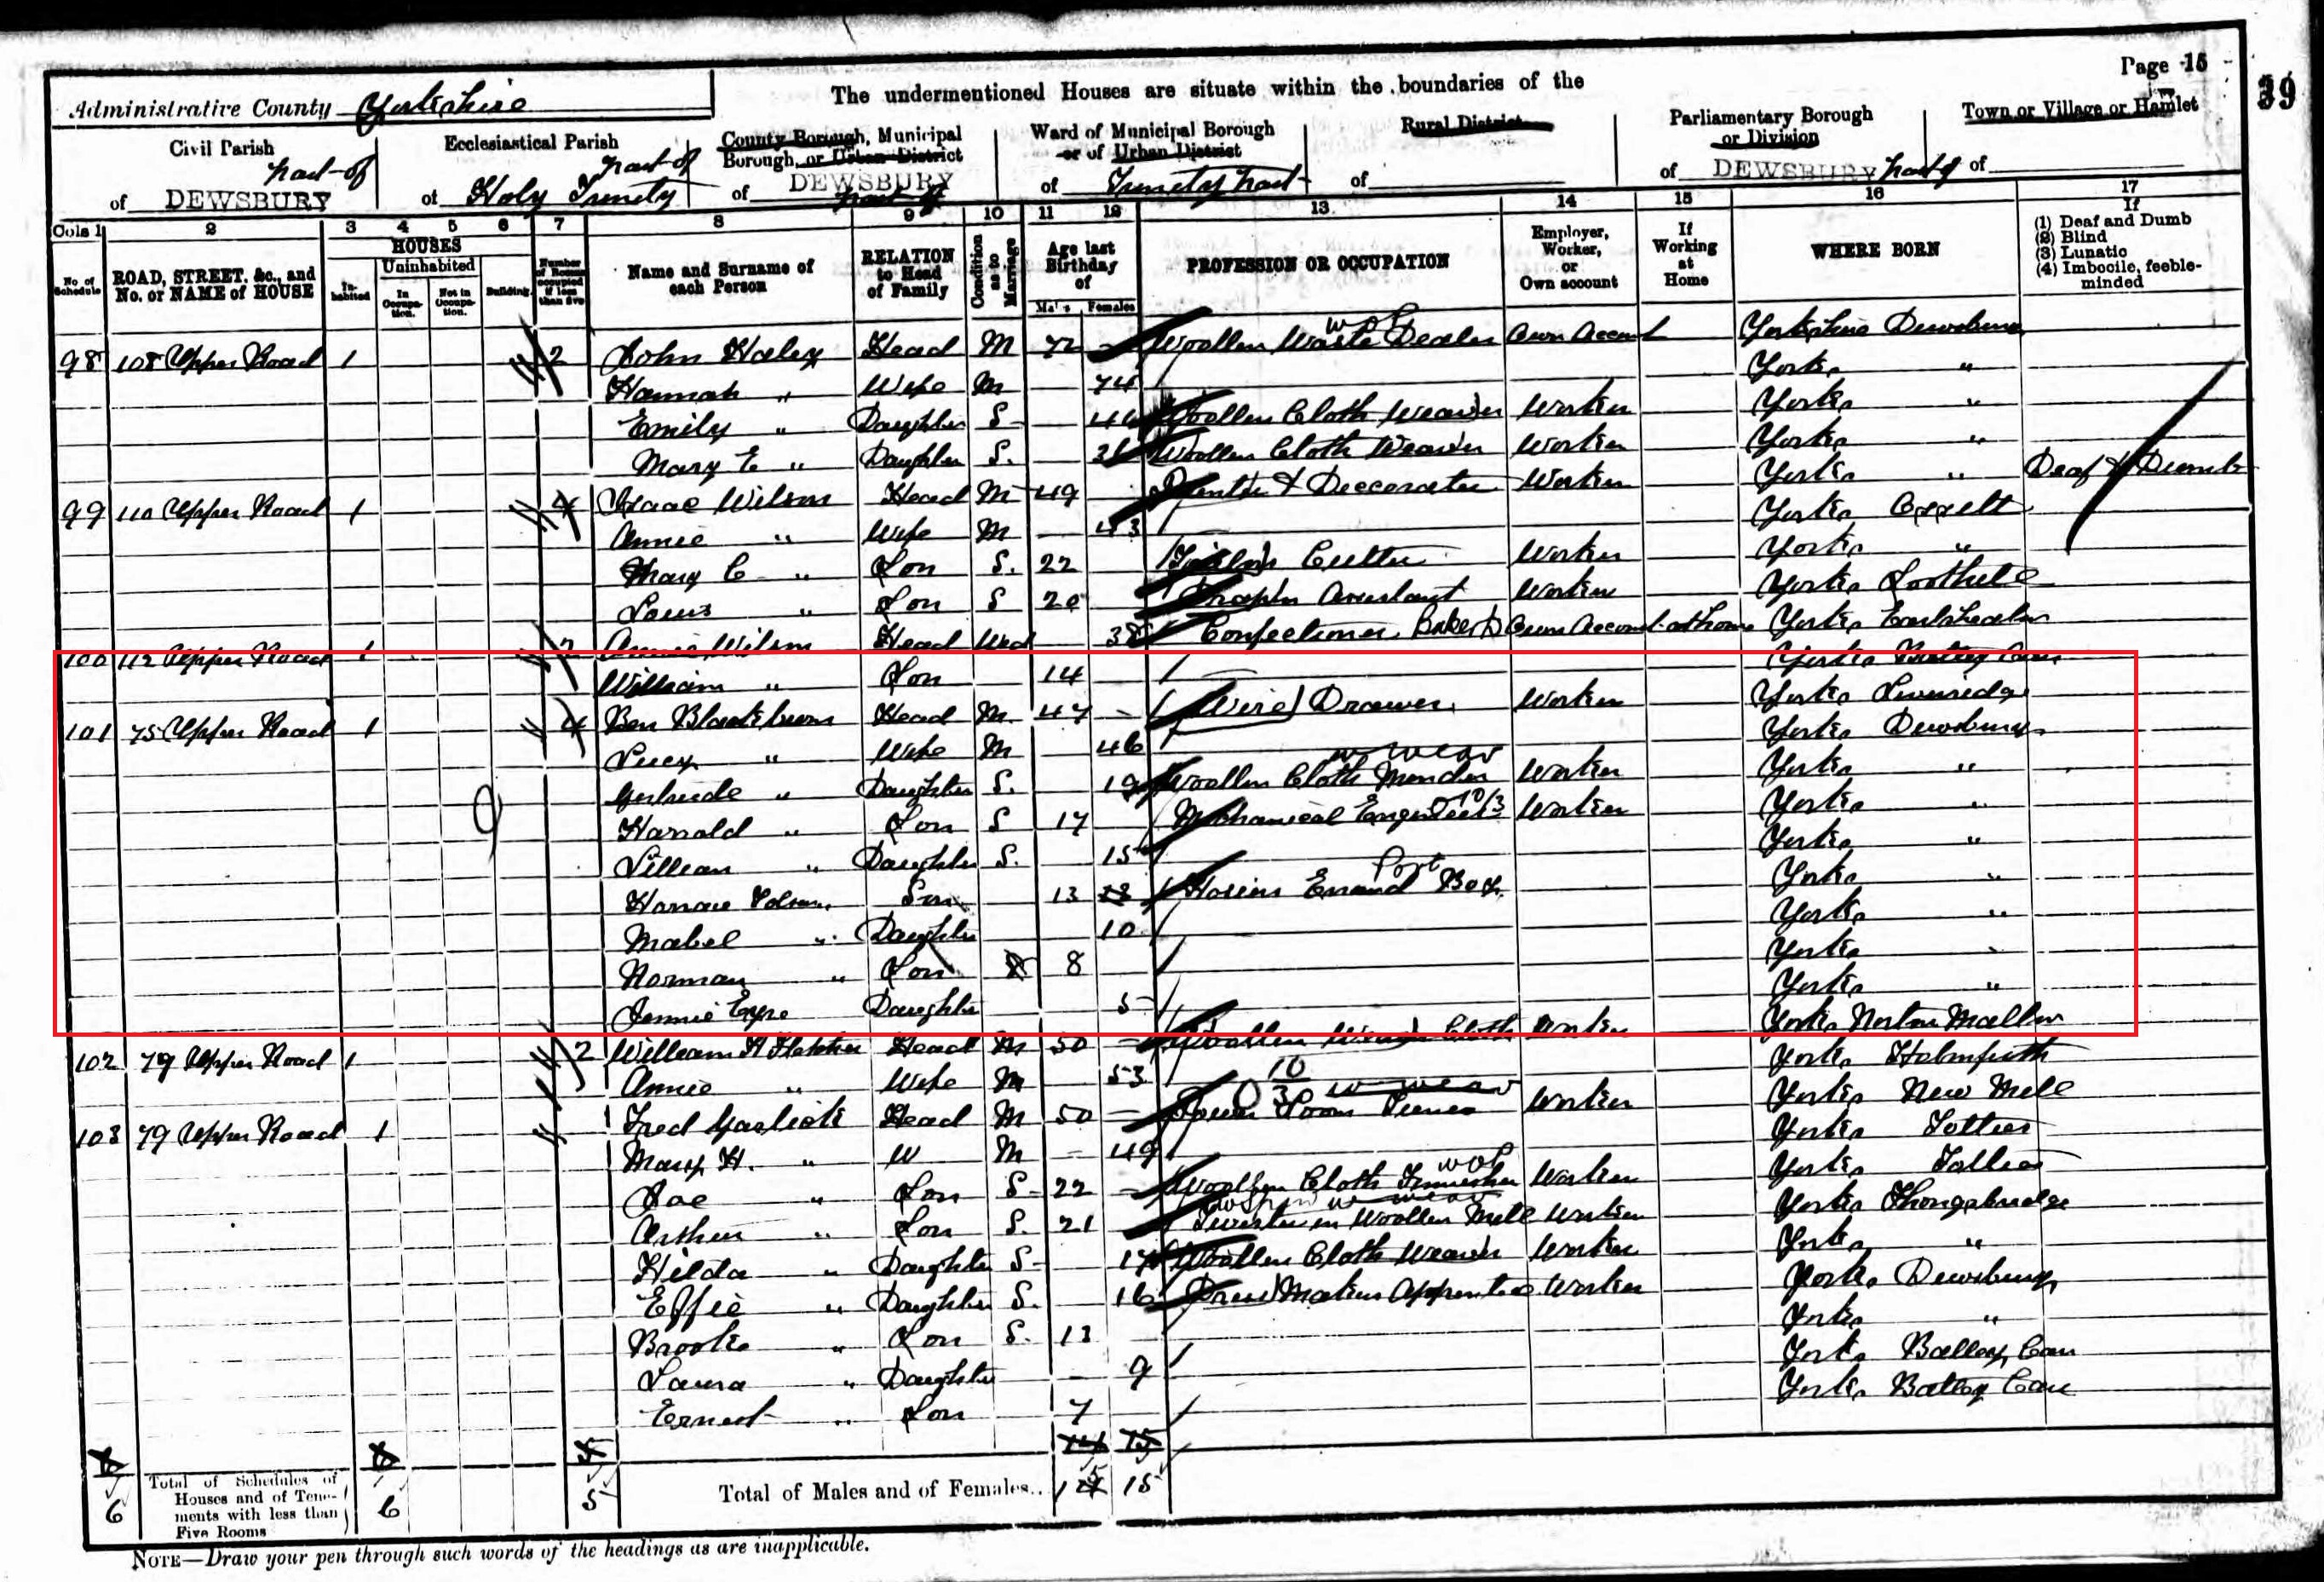 Page 15
39
Administrative County Yorkshire
The undermentioned Houses are situate within the boundaries of the
Civil Parish
part of
of DEWSBURY
Ecclesiastical Parish
part of
of Holy Trinity
County Borough, Municipal
Borough, or Urban District
of DEWSBURY
part of
Ward of Municipal Borough
or of Urban District
of Trinity part
Rural District
of
Parliamentary Borough
or Division
of DEWSBURY part of
Town or Village or Hamlet
of
Cols 1 2 3 4 5 6 7 8 9 10 11 12 13 14 15 16 17
No. of Schedule
ROAD, STREET, &c., and
No. or NAME of HOUSE
HOUSES
Inhabited
Uninhabited
In Occupation.
Not in Occupation.
Building.
Number of Rooms occupied if less than five
Name and Surname of
each Person
RELATION
to Head
of Family
Condition as to Marriage
Age last
Birthday
of
Males Females
PROFESSION OR OCCUPATION
Employer,
Worker,
or
Own account
If
Working
at
Home
WHERE BORN
If
(1) Deaf and Dumb
(2) Blind
(3) Lunatic
(4) Imbecile, feeble-
minded
98 108 Upper Road 1 2 John Haley Head M 72 Woollen Waste Dealer Own Account Yorkshire Dewsbury
Hannah " Wife M 74 Yorks "
Emily " Daughter S 46 Woollen Cloth Weaver Worker Yorks "
Mary E " Daughter S. Woollen Cloth Weaver Worker Yorks "
99 110 Upper Road 1 4 Isaac Wilson Head M 49 & Deccorator Worker Yorks " Deaf & Dumb
Annie " Wife M 53 Yorks
Mary C " Son S. 22 Tailor's Cutter Worker Yorks "
Louis " Son S 20 Draper Assistant Worker Yorks Soothill
100 112 Upper Road 1 2 Annie Wilson Head Wed 38 Confectioner Baker Own Account at home Yorks Earlsheaton
William " Son 14 Yorks Batley Carr
101 75 Upper Road 1 4 Ben Blackburn Head M 47 Wire Drawer Worker Yorks Liversedge
Lucy " Wife M 46 Yorks Dewsbury
w weav
Gertrude " Daughter S. 19 Woollen Cloth Mender Worker Yorks "
Harrald " Son S 17 Mechanical Engineer Worker Yorks "
Lillian " Daughter S. 15 Yorks "
Port
Horrace Son 13 Hosiers Errand Boy Yorks "
Mabel " Daughter 10 Yorks "
Norman " Son 8 Yorks "
Jennie Eyre Daughter 5 Yorks "
102 79 Upper Road 1 2 William H Fletcher Head M 50 Woollen Weaver Cloth Worker Yorks Norton Malton
Annie " Wife M 53 Yorks Holmfirth
10
3 w weav
103 79 Upper Road 1 Fred Garlick Head M 50 Power Loom Tuner Worker Yorks New Mill
Mary H. " W M 49 Yorks Totties
Joe " Son S 22 Woollen Cloth Finisher Worker Yorks Totties
Arthur " Son S. 21 Twister in Woollen Mill Worker Yorks Thongsbridge
Hilda " Daughter S 17 Woollen Cloth Weaver Worker Yorks "
Effie " Daughter S. 16 Dress Maker Apprentice Worker Yorks Dewsbury
Brooke " Son S. 13 Yorks "
Laura " Daughter 9 Yorks Batley Carr
Ernest " Son 7 Yorks Batley Carr
Total of Schedules of
Houses and of Tene-
ments with less than
Five Rooms
6 6 5
Total of Males and of Females.. 15 15
NOTE—Draw your pen through such words of the headings as are inapplicable.